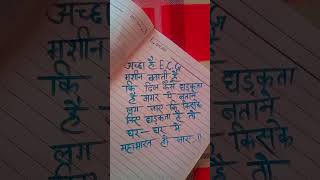 अच्छा है E.C.G
मशीन बताती है
कि दिल कैसे धड़कता
है अगर ये बताने
लग जाए कि किसके
लिए धड़कता है तो
घर - घर में
महाभारत हो जाए ॥